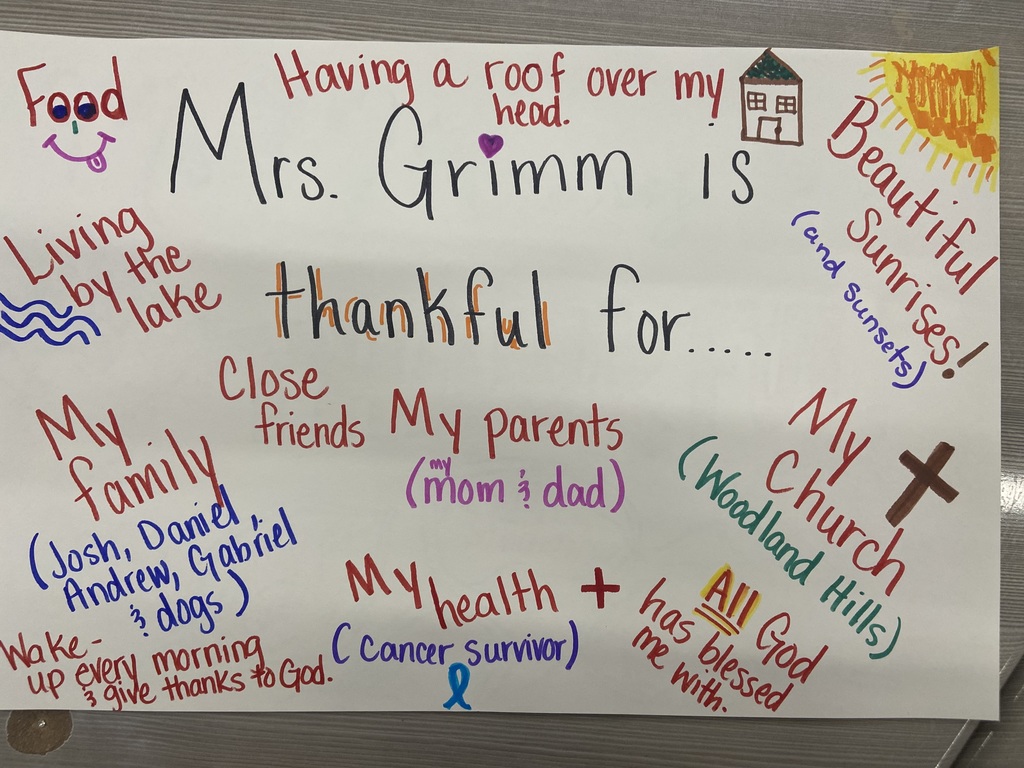 Food
Having a roof over my
head.
Mrs. Grimm is
thankful for.....
Beautiful
Sunrises!
(and sunsets)
Living
by the
lake
Close
friends
My parents
(my mom & dad)
My
Church
(Woodland Hills)
My
family
(Josh, Daniel,
Andrew, Gabriel
& dogs)
My health +
(cancer survivor)
All God
has blessed
me with.
Wake-
up every morning
& give thanks to God.